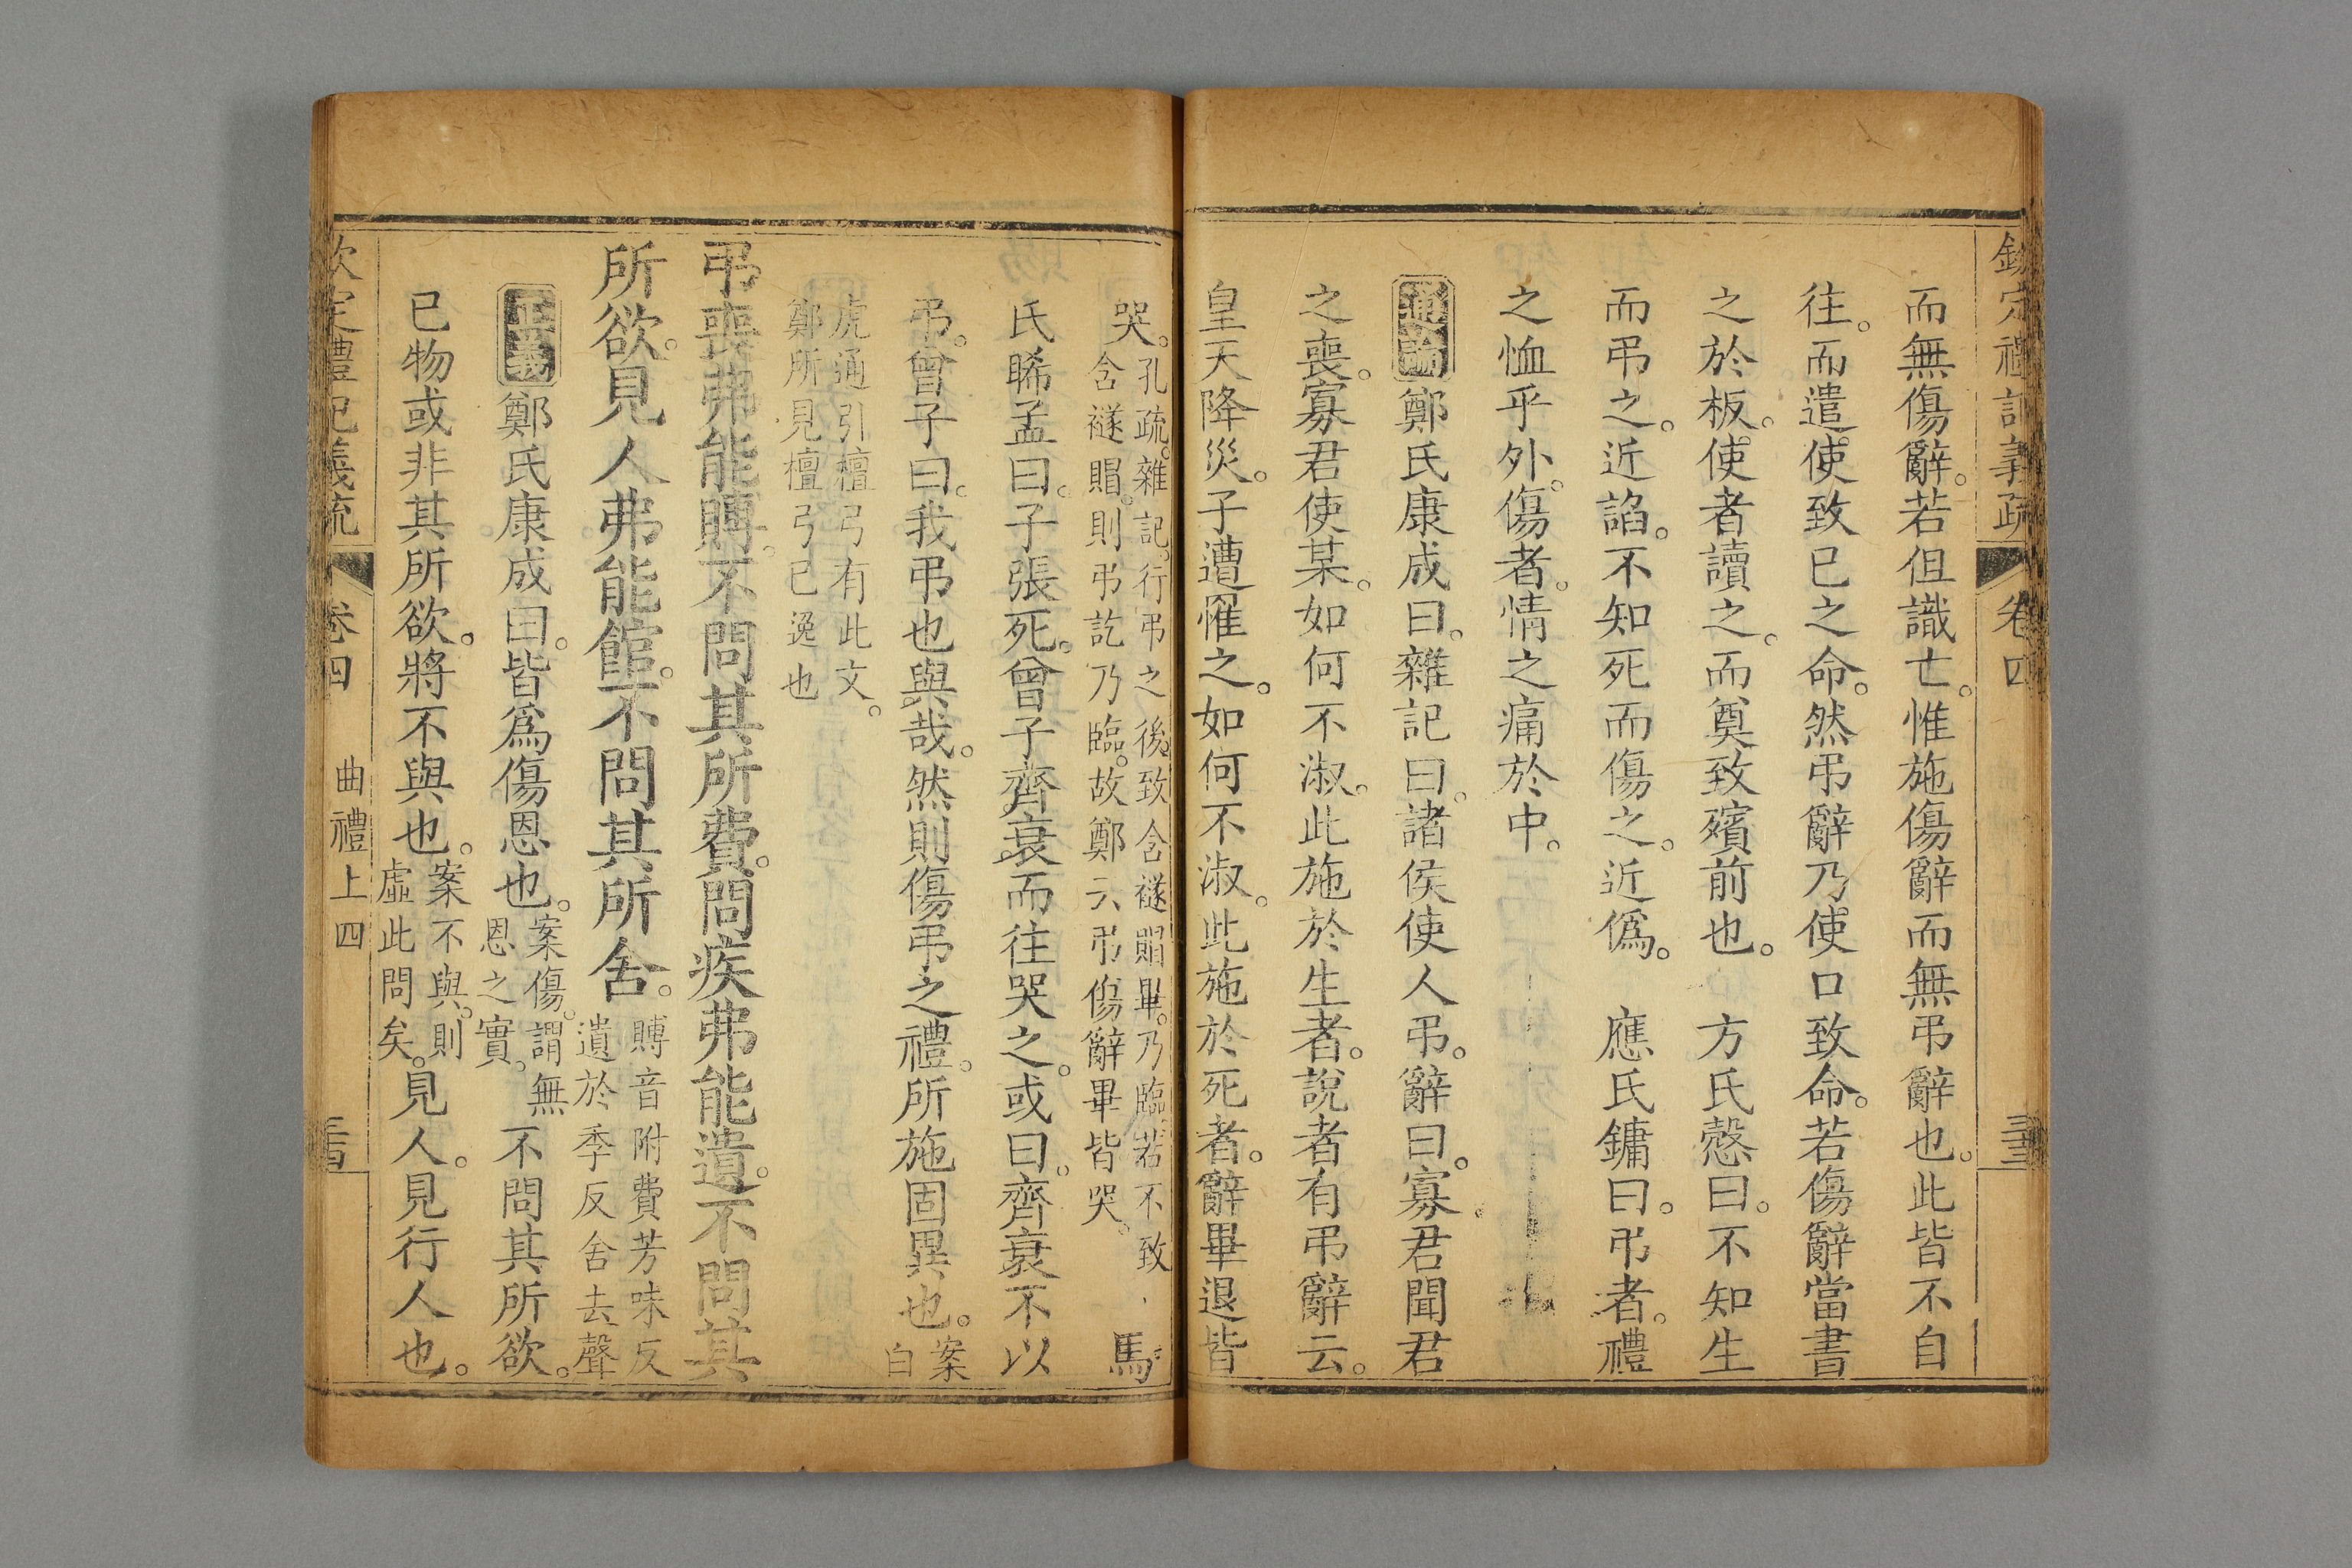 欽定禮記義疏 卷四
而無傷辭。若但識亡。惟施傷辭而無弔辭也。此皆不自
往。而遣使致已之命。然弔辭乃使口致命。若傷辭當書
之於板。使者讀之。而奠致殯前也。 方氏慤曰。不知生
而弔之。近諂。不知死而傷之。近偽。 應氏鏞曰。弔者。禮
之恤乎外。傷者。情之痛於中。
通論 鄭氏康成曰。雜記曰。諸侯使人弔。辭曰。寡君聞君
之喪。寡君使某。如何不淑。此施於生者。說者有弔辭云。
皇天降災。子遭罹之。如何不淑。此施於死者。辭畢退皆
哭。孔疏。雜記。行弔之後。致含襚賵畢。乃臨。若不致
含襚賵。則弔訖乃臨。故鄭云弔傷辭畢皆哭。 馬
氏睎孟曰。子張死。曾子齊衰而往哭之。或曰。齊衰不以
弔。曾子曰。我弔也與哉。然則傷弔之禮。所施固異也。案白
虎通引檀弓有此文。
鄭所見檀弓已逸也
弔喪弗能賻。不問其所費。問疾弗能遺。不問其
所欲。見人弗能館。不問其所舍。賻音附費芳味反
遺於季反舍去聲
正義 鄭氏康成曰。皆為傷恩也。案傷。謂無
恩之實。不問其所欲。
已物或非其所欲。將不與也。案不與。則
虛此問矣。見人。見行人也。
欽定禮記義疏 卷四 曲禮上四